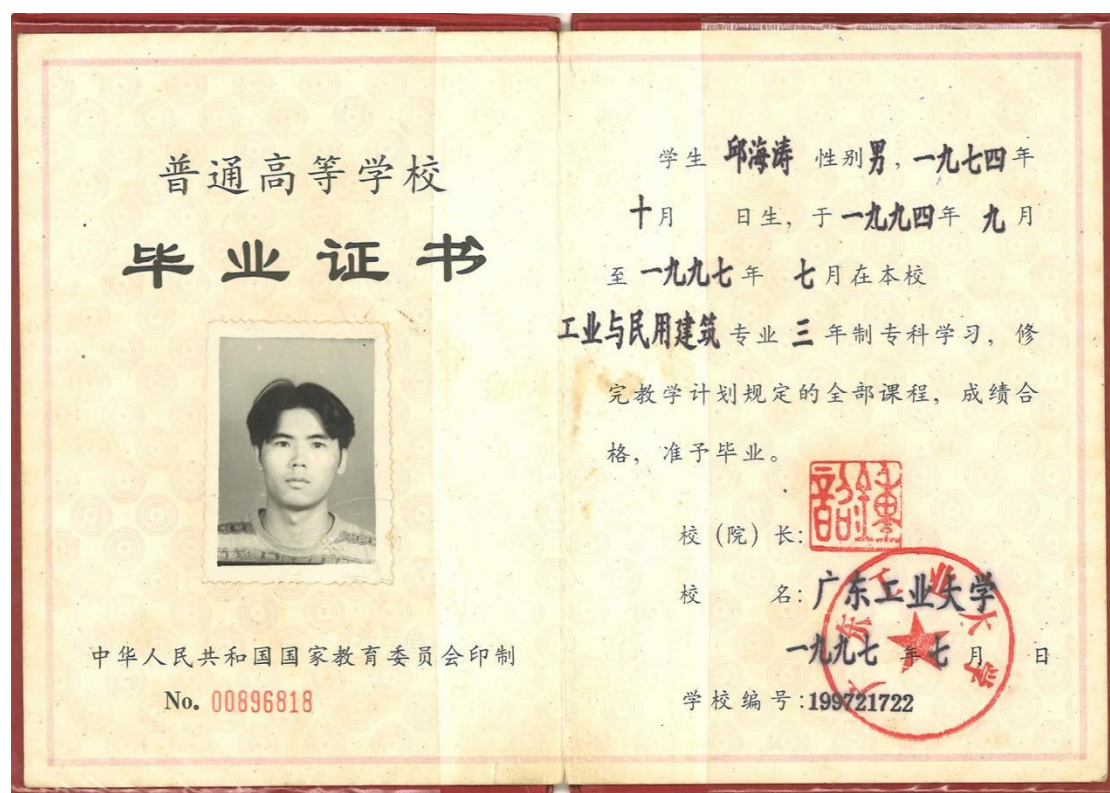 普通高等学校
毕业证书
中华人民共和国国家教育委员会印制
No. 00896818
学生 邱海涛 性别男，一九七四年
十月 日生，于一九九四年 九月
至一九九七年 七月在本校
工业与民用建筑专业 三 年制专科学习，修
完教学计划规定的全部课程，成绩合
格，准予毕业。
校（院）长：
校 名：广东工业大学
一九九七 年七 月 日
学校编号：199721722
广东工业大学